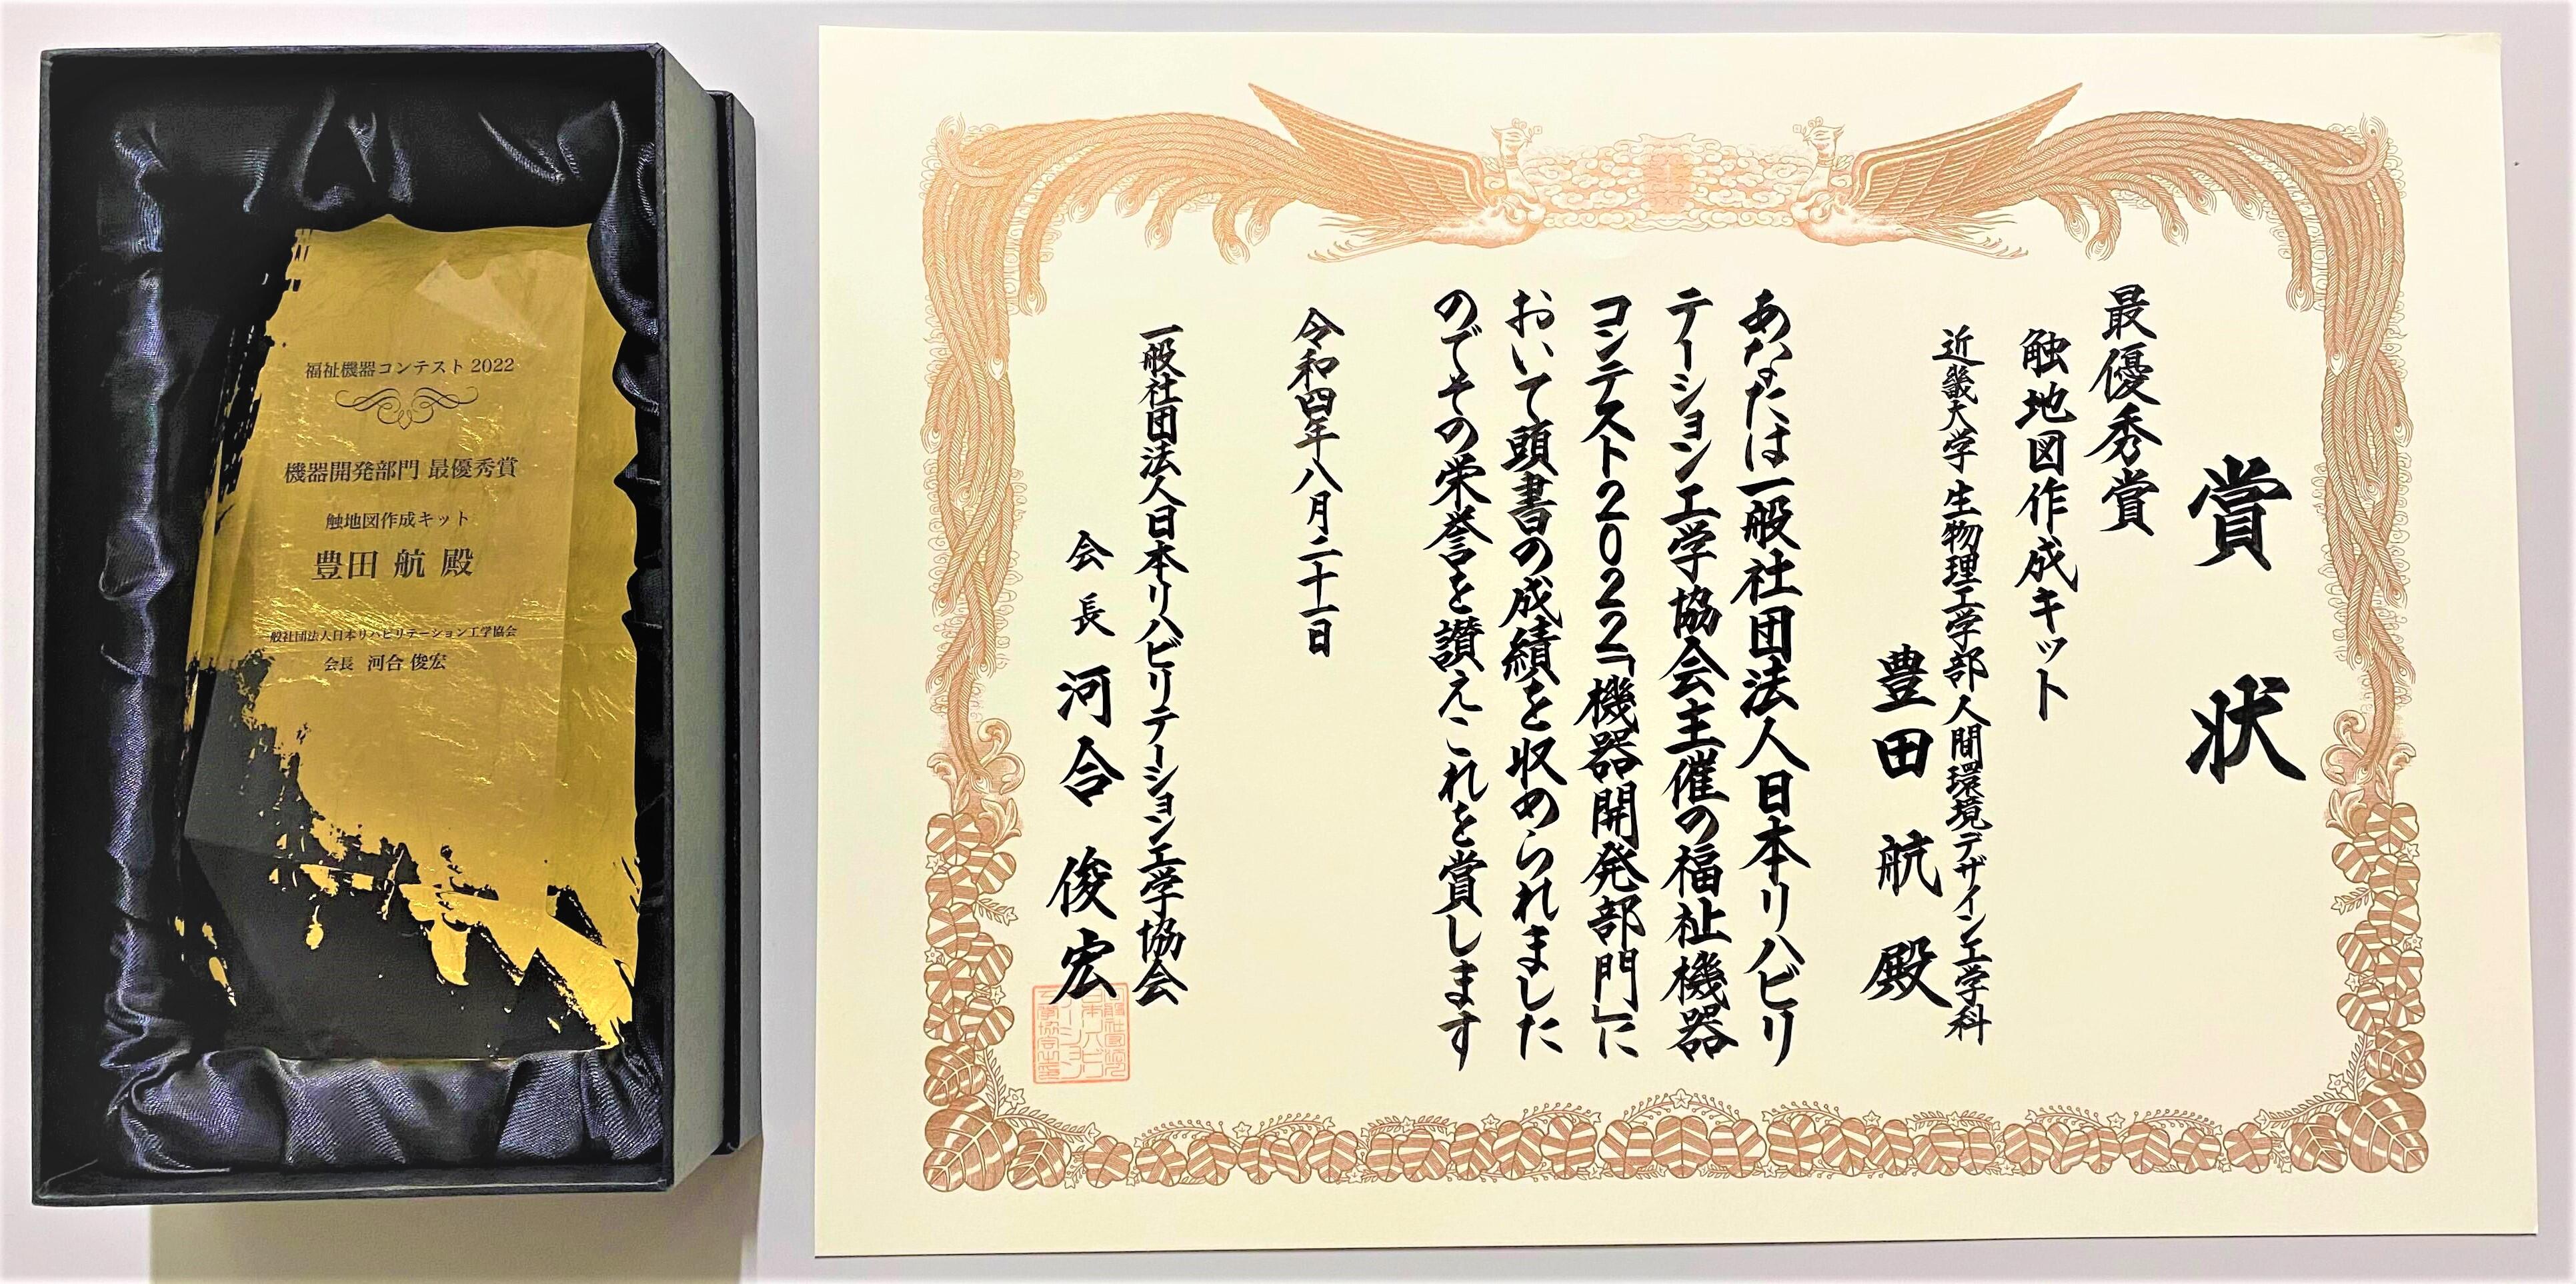 福祉機器コンテスト 2022
機器開発部門 最優秀賞
触地図作成キット
豊田 航 殿
一般社団法人日本リハビリテーション工学協会
会長 河合 俊宏
賞状
最優秀賞
触地図作成キット
近畿大学 生物理工学部人間環境デザイン工学科
豊田 航 殿
あなたは一般社団法人日本リハビリ
テーション工学協会主催の福祉機器
コンテスト2022「機器開発部門」に
おいて頭書の成績を収められました
のでその栄誉を讃えこれを賞します
令和四年八月二十一日
一般社団法人日本リハビリテーション工学協会
会長 河合 俊宏